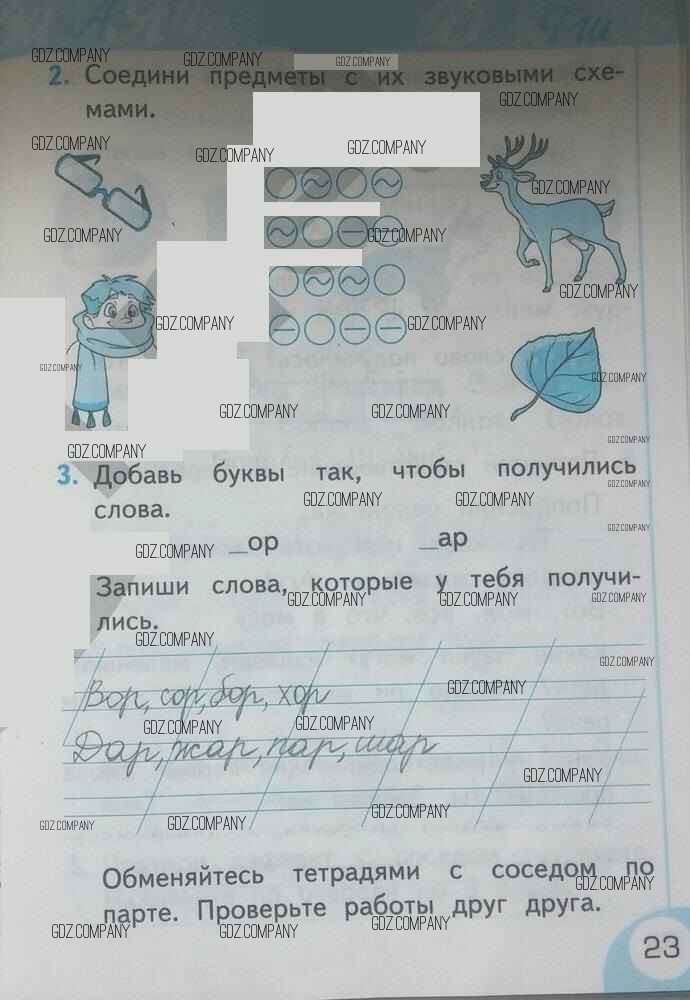 2. Соедини предметы с их звуковыми схе-
мами.
3. Добавь буквы так, чтобы получились
слова.
_ор _ар
Запиши слова, которые у тебя получи-
лись.
Вор, сор, бор, хор
Дар, жар, пар, шар
Обменяйтесь тетрадями с соседом по
парте. Проверьте работы друг друга.
23
GDZ.COMPANY